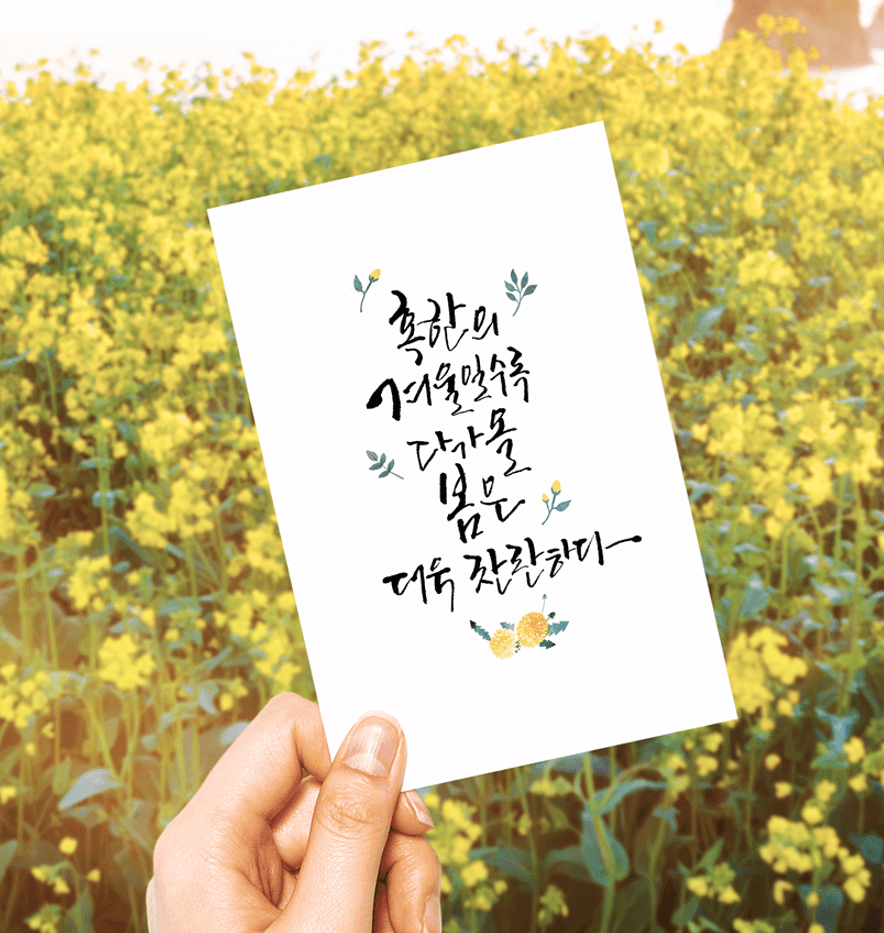 혹한의
겨울일수록
다가올
봄은
더욱 찬란하다